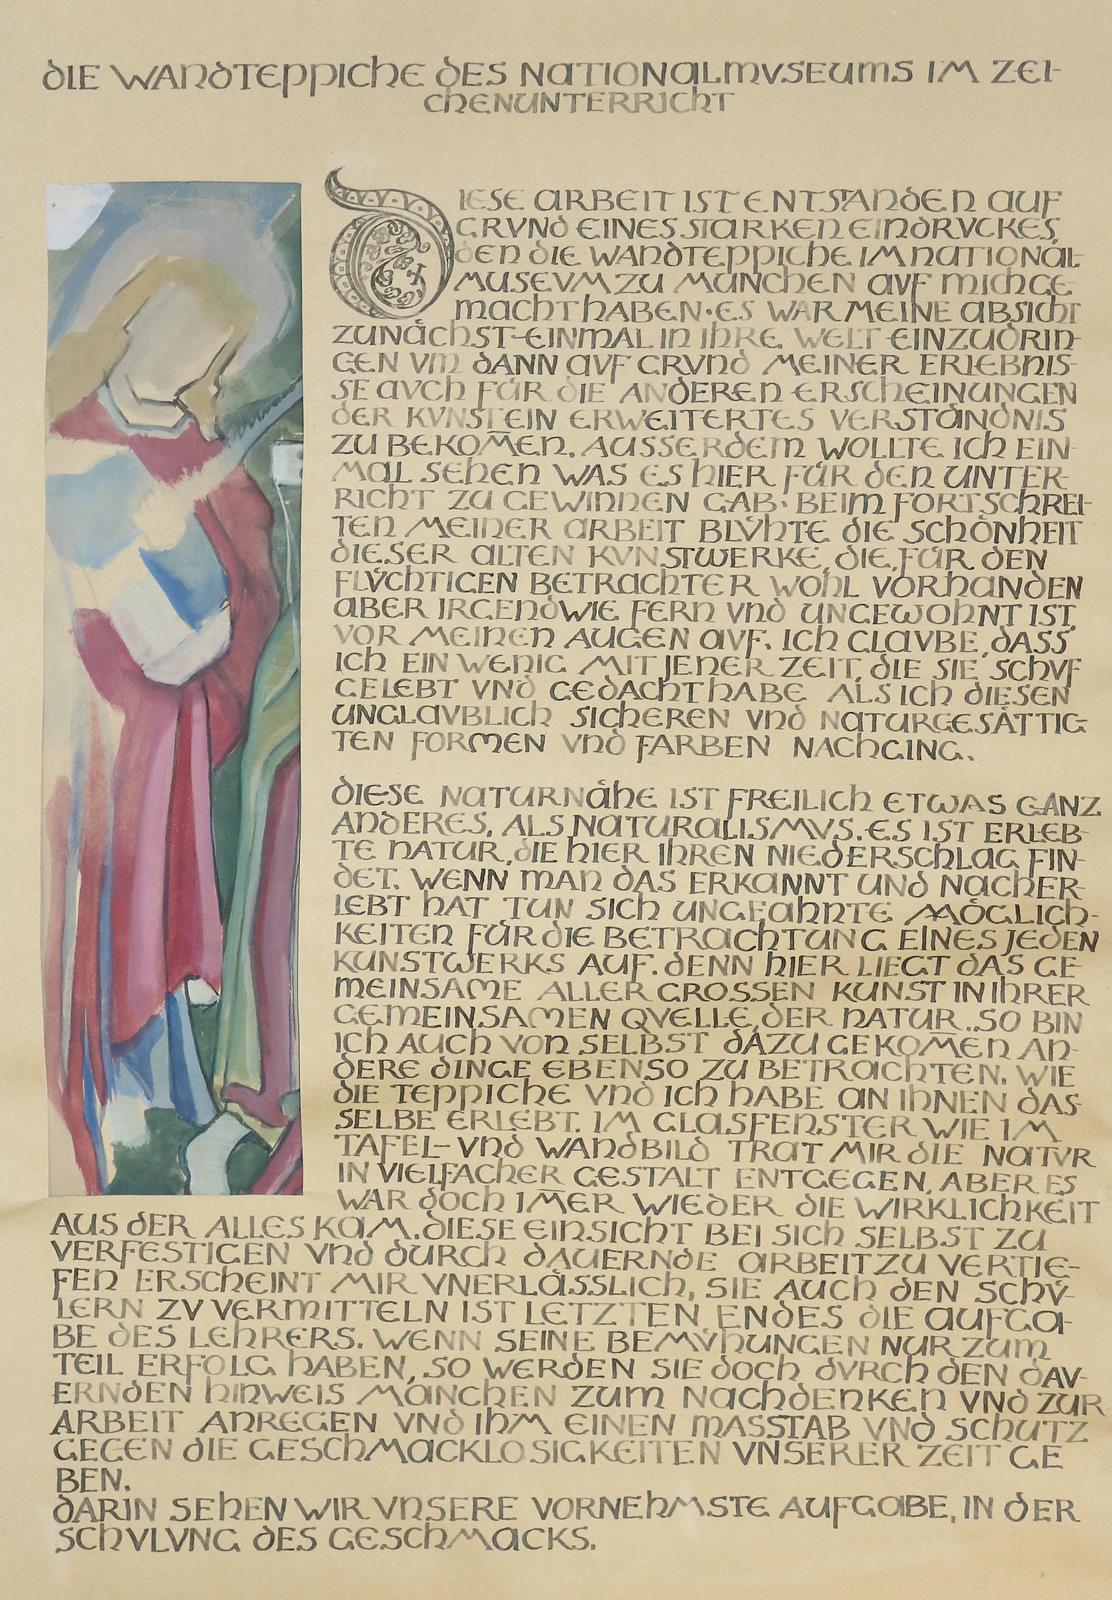 DIE WANDTEPPICHE DES NATIONALMVSEUMS IM ZEI-
CHENUNTERRICHT
DIESE ARBEIT IST ENTSTANDEN AUF
GRVND EINES STARKEN EINDRVCKES,
DEN DIE WANDTEPPICHE IM NATIONAL
MUSEVM ZU MÜNCHEN AVF MICH GE
MACHT HABEN. ES WAR MEINE ABSICHT
ZUNÄCHST EINMAL IN IHRE WELT EINZUDRIN-
GEN VM DANN AVF GRVND MEINER ERLEBNIS-
SE AVCH FÜR DIE ANDEREN ERSCHEINUNGEN
DER KVNST EIN ERWEITERTES VERSTÄNDNIS
ZU BEKOM̄EN. AUSSERDEM WOLLTE ICH EIN-
MAL SEHEN WAS ES HIER FÜR DEN UNTER-
RICHT ZU GEWINNEN GAB. BEIM FORTSCHREI-
TEN MEINER ARBEIT BLV̈HTE DIE SCHÖNHEIT
DIESER ALTEN KVNSTWERKE, DIE, FÜR DEN
FLV̈CHTIGEN BETRACHTER WOHL VORHANDEN
ABER IRGENDWIE FERN VND UNGEWOHNT IST,
VOR MEINEN AUGEN AVF. ICH GLAVBE, DASS
ICH EIN WENIG MIT JENER ZEIT, DIE SIE SCHVF
GELEBT VND GEDACHT HABE ALS ICH DIESEN
UNGLAVBLICH SICHEREN VND NATURGESÄTTIG-
TEN FORMEN VND FARBEN NACHGING.
DIESE NATURNÄHE IST FREILICH ETWAS GANZ
ANDERES, ALS NATURALISMVS. ES IST ERLEB-
TE NATUR, DIE HIER IHREN NIEDERSCHLAG FIN-
DET. WENN MAN DAS ERKANNT UND NACHER-
LEBT HAT TUN SICH UNGEAHNTE MÖGLICH-
KEITEN FÜR DIE BETRACHTUNG EINES JEDEN
KUNSTWERKS AUF. DENN HIER LIEGT DAS GE-
MEINSAME ALLER GROSSEN KUNST IN IHRER
GEMEINSAMEN QVELLE, DER NATUR. SO BIN
ICH AUCH VON SELBST DAZU GEKOMEN AN-
DERE DINGE EBENSO ZU BETRACHTEN. WIE
DIE TEPPICHE VND ICH HABE AN IHNEN DAS-
SELBE ERLEBT. IM GLASFENSTER WIE IM
TAFEL- VND WANDBILD TRAT MIR DIE NATVR
IN VIELFACHER GESTALT ENTGEGEN, ABER ES
WAR DOCH IMER WIEDER DIE WIRKLICHKEIT
AUS DER ALLES KAM. DIESE EINSICHT BEI SICH SELBST ZU
VERFESTIGEN VND DURCH DAUERNDE ARBEIT ZU VERTIE-
FEN ERSCHEINT MIR VNERLÄSSLICH, SIE AUCH DEN SCHV̈-
LERN ZV VERMITTELN IST LETZTEN ENDES DIE AUFGA-
BE DES LEHRERS. WENN SEINE BEMV̈HUNGEN NUR ZUM
TEIL ERFOLG HABEN, SO WERDEN SIE DOCH DVRCH DEN DAV-
ERNDEN HINWEIS MANCHEN ZUM NACHDENKEN VND ZUR
ARBEIT ANREGEN VND IHM EINEN MASSTAB VND SCHUTZ
GEGEN DIE GESCHMACKLOSIGKEITEN VNSERER ZEIT GE
BEN.
DARIN SEHEN WIR VNSERE VORNEHMSTE AUFGABE, IN DER
SCHVLVNG DES GESCHMACKS.